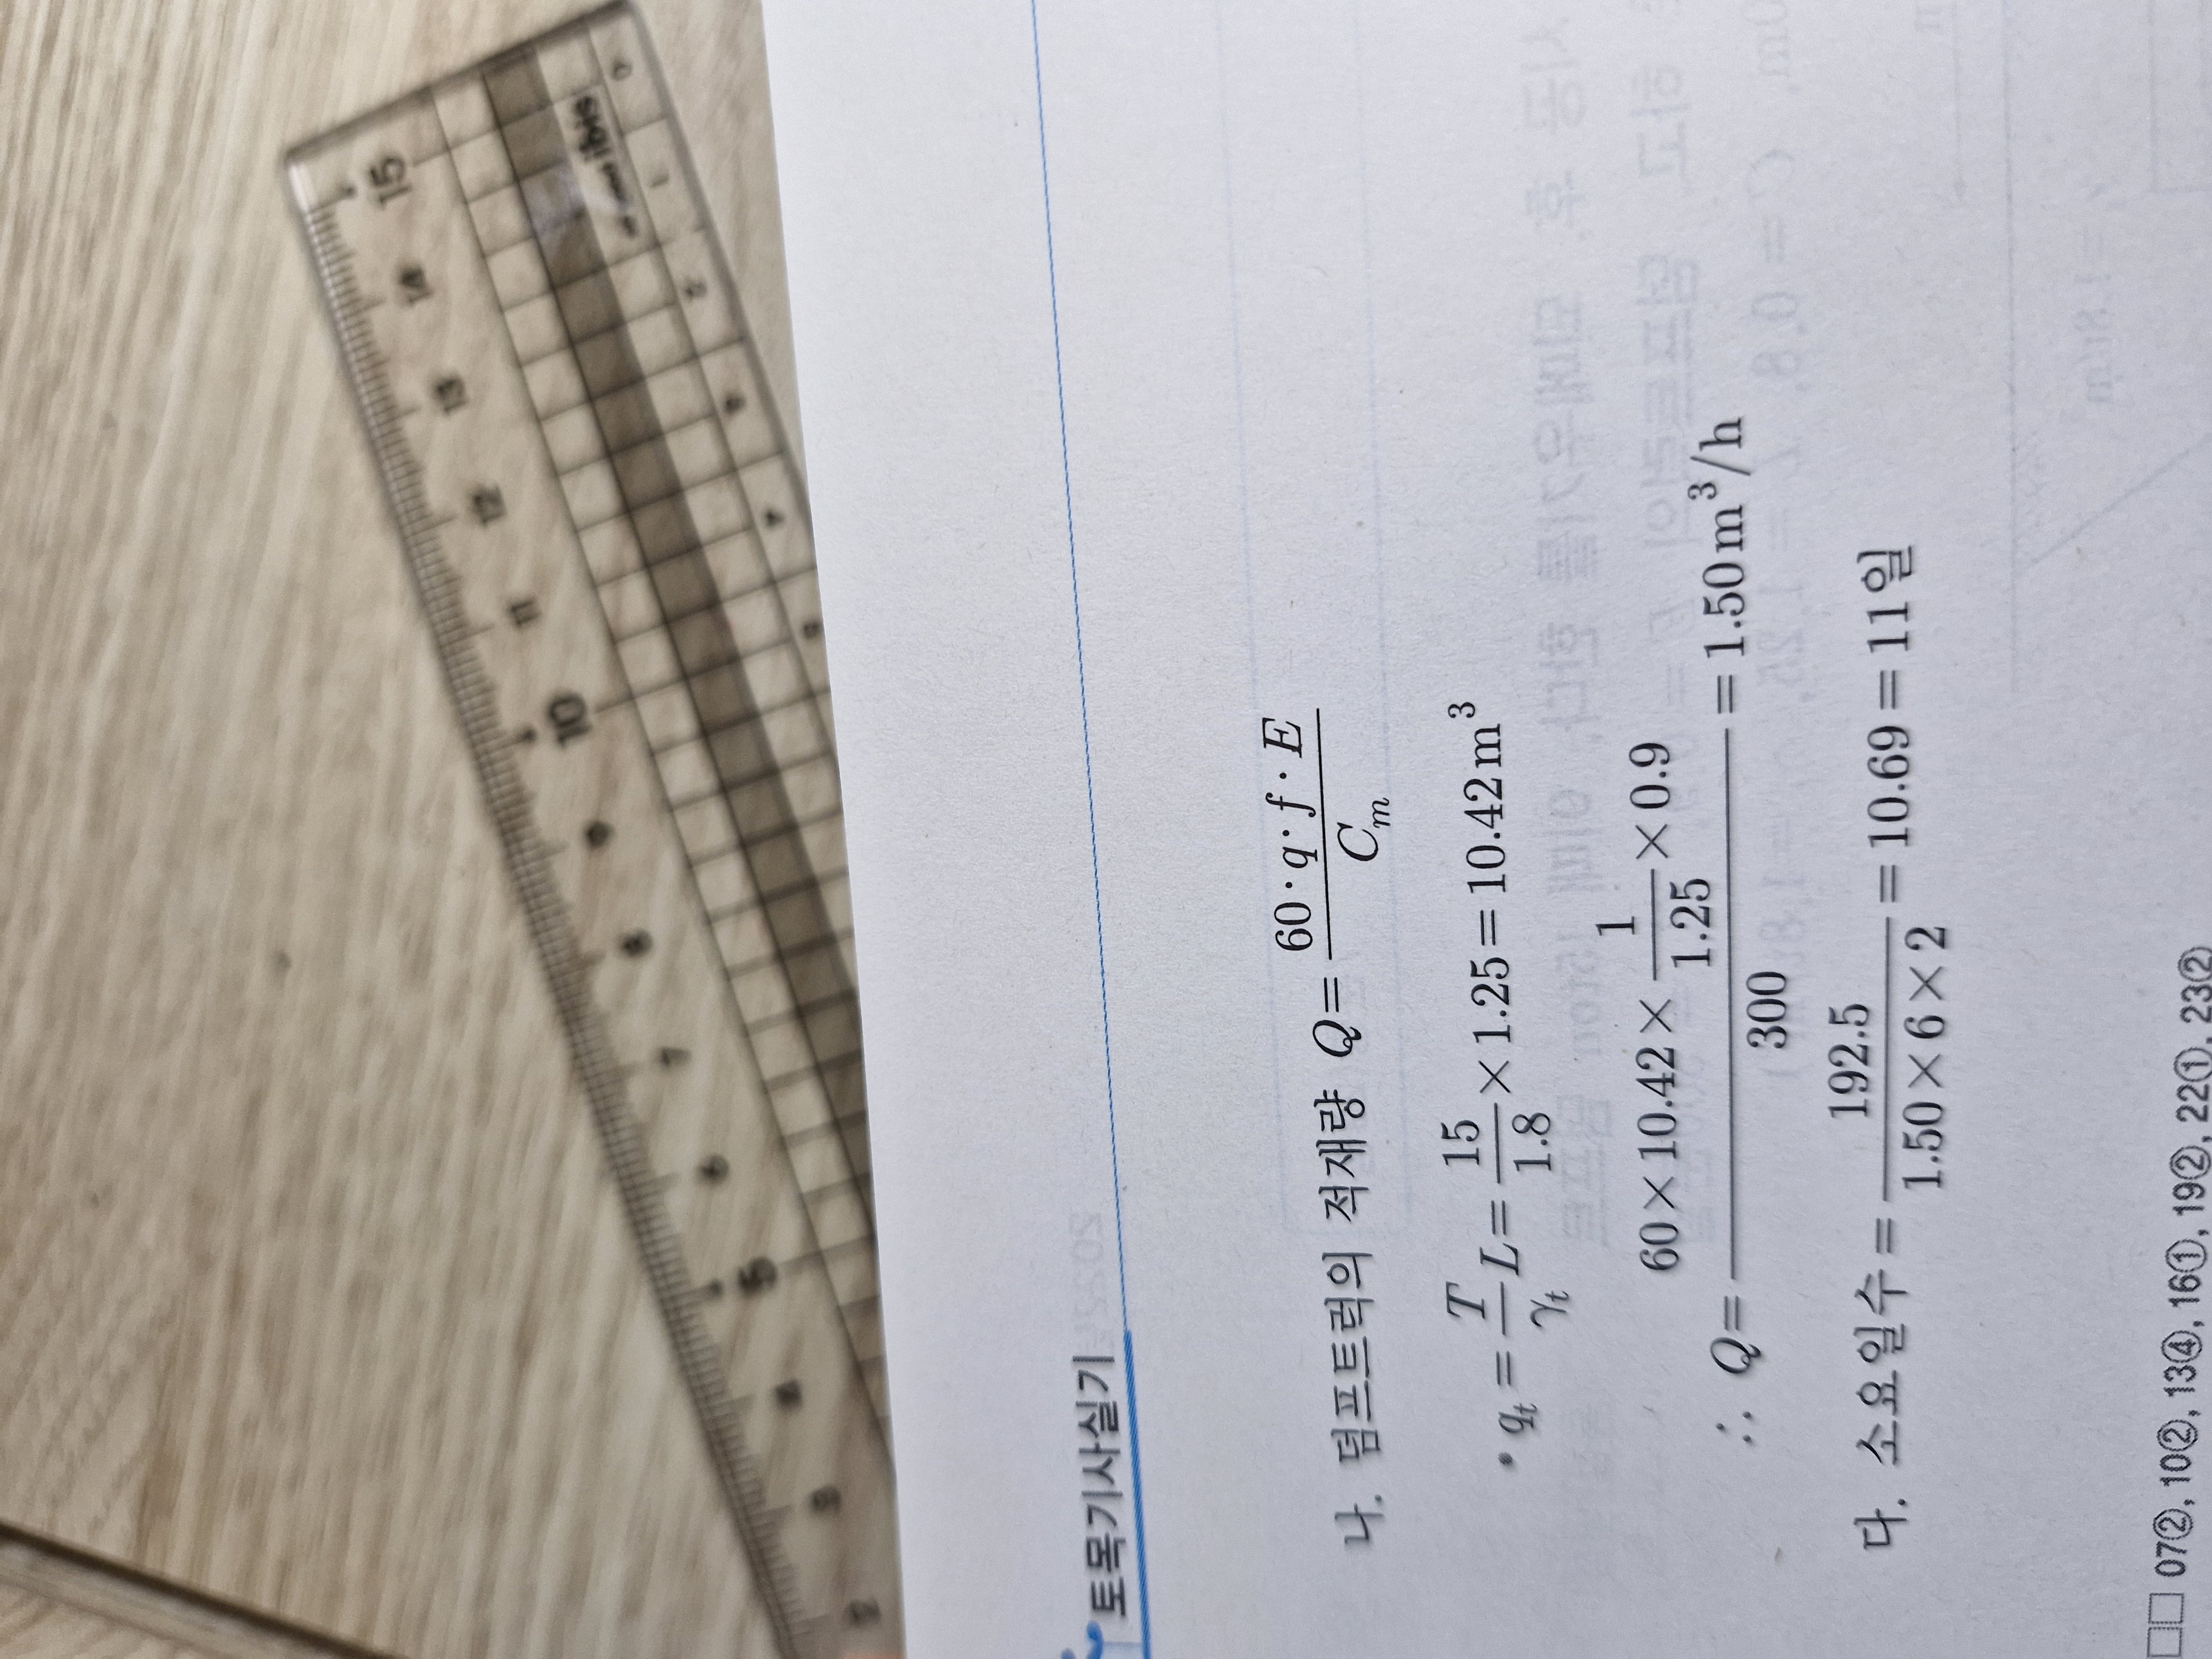 토목기사실기
나. 덤프트럭의 적재량 Q = (60·q·f·E)/C_m
• q_t = (T/γ_t)L = (15/1.8)×1.25 = 10.42m³
∴ Q = (60×10.42×(1/1.25)×0.9)/300 = 1.50m³/h
다. 소요일수 = 192.5/(1.50×6×2) = 10.69 = 11일
□□ 07②, 10②, 13④, 16①, 19②, 22①, 23②
15 14 13 12 11 10 9 8 7 6 5 4 3 2
0 1 2 3 4 5